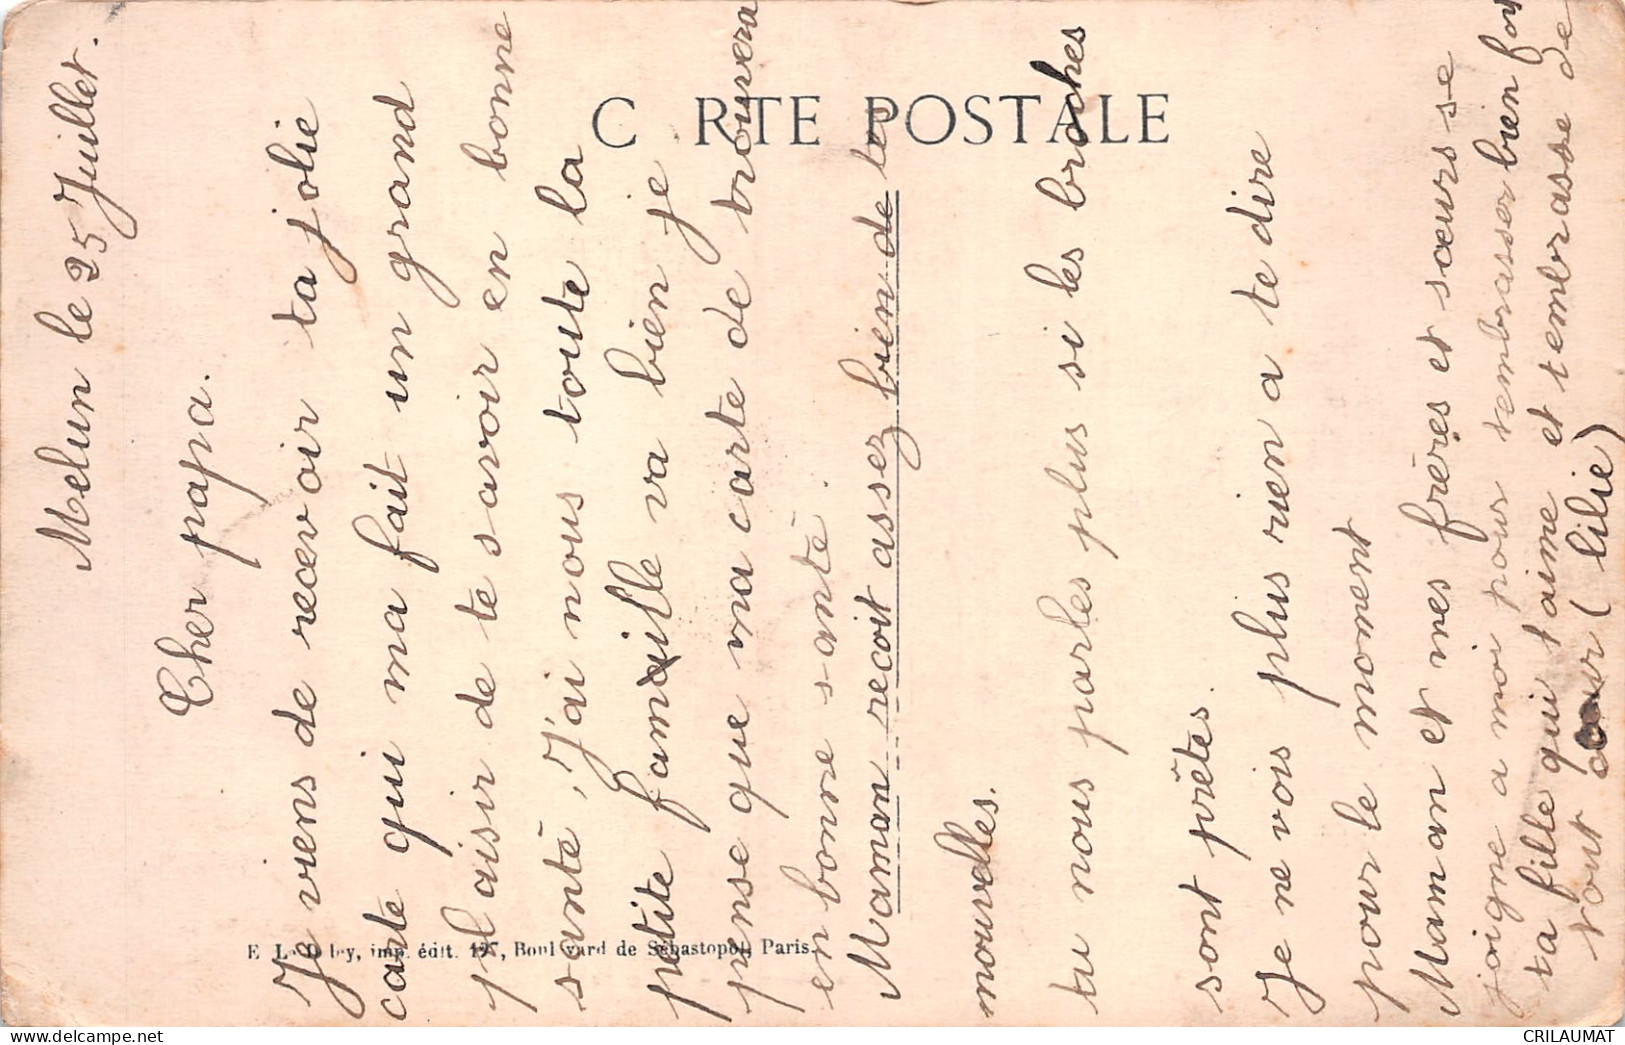 C RTE POSTALE
Melun le 25 Juillet.
Cher papa.
Je viens de recevoir ta jolie
carte qui ma fait un grand
plaisir de te savoir en bonne
santé, J'ai nous toute la
petite famille va bien je
pense que ma carte de trouvera
en bonne santé.
Maman recoit assez bien de tes
nouvelles.
tu nous parles plus si les broches
sont prêtes.
Je ne vois plus rien a te dire
pour le moment
Maman et mes frères et sœurs se
joigne a moi pour t'embrasser bien fort
ta fille qui t'aime et t'embrasse de
tout cœur (Lilie)
E. Le Deley, imp. édit. 127, Boulevard de Sébastopol, Paris.
CRILAUMAT